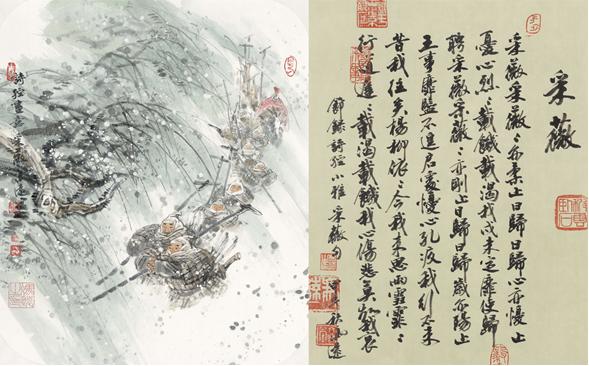 采薇
采薇采薇〻亦柔止曰歸曰歸心亦憂止
憂心烈〻載饑載渴我戍未定靡使歸
聘采薇采薇〻亦剛止曰歸曰歸歲亦陽止
王事靡盬不遑啟處憂心孔疚我行不來
昔我往矣楊柳依〻今我來思雨雪霏〻
行道遲〻載渴載饑我心傷悲莫知我哀
節錄詩經小雅采薇句
詩經畫意采薇